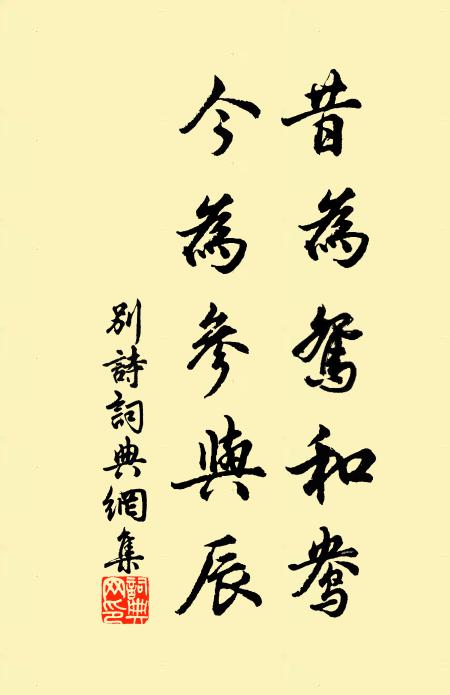 昔為鴛和鴦
今為參與辰
別詩詞典網集
詞典
网印